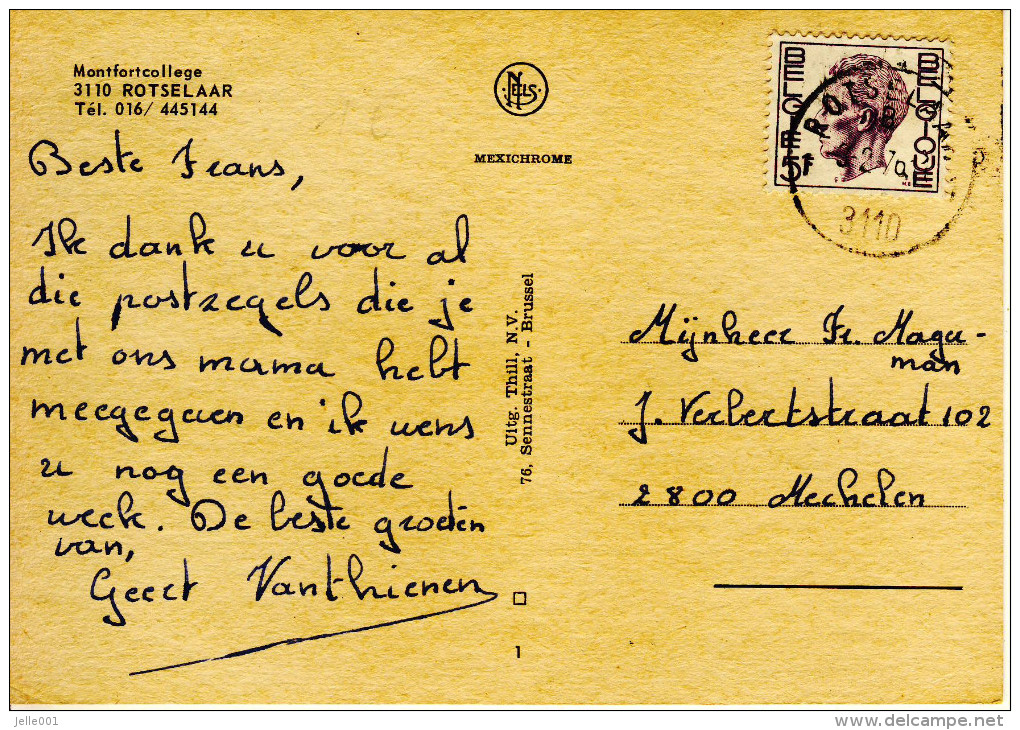 Montfortcollege
3110 ROTSELAAR
Tél. 016/ 445144
NELS
MEXICHROME
Beste Frans,
Ik dank u voor al
die postzegels die je
met ons mama hebt
meegegeven en ik wens
u nog een goede
week. De beste groeten
van,
Geert Vanthienen
Uitg. Thill, N.V.
76, Sennestraat - Brussel
1
BELGIE
BELGIQUE
5F
ROTSELAAR
3110
Mijnheer Fr. Magu-
man
J. Verbertstraat 102
2800 Mechelen
Jelle001
www.delcampe.net